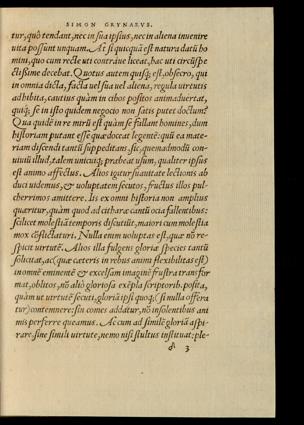 SIMON GRYNAEVS.
tur, quò tendant, nec in sua ipsius, nec in aliena inuenire
uita possunt unquam. At si quicquã est natura datũ ho
mini, quo cum recte uti contraiue liceat, hac uti circũspe
ctißime decebat. Quotus autem quisq; est, obsecro, qui
in omnia dicta, facta uel sua uel aliena, regula uirtutis
adhibita, cautius quàm in cibos positos animaduertat,
quiq; se in isto quidem negocio non satis putet doctum?
Qua quidẽ in re mirũ est quàm se fallant homines, dum
historiam putant esse quæ doceat legentẽ: quũ ea mate-
riam discendi tantũ suppeditans sic, quemadmodũ con-
uiuiũ illud, talem unicuiq; præbeat usum, qualiter ipsus
est animo affectus. Alios igitur suauitate lectionis ab
duci uidemus, & uoluptatem secutos, fructus illos pul-
cherrimos amittere. Iis ex omni historia non amplius
quæritur, quàm quod ad citharæ cantũ ocia fallentibus:
scilicet molestiã temporis discutiũt, maiori cum molestia
mox cõflictaturi. Nulla enim uoluptas est, quæ nõ re-
spicit uirtutẽ. Alios illa fulgens gloriæ species tantũ
solicitat, ac (quæ cæteris in rebus animi flexibilitas est)
in omnẽ eminentẽ & excelsam imaginẽ frustra transfor
mat, oblitos, nõ aliò gloriosa exẽpla scriptorib. posita,
quàm ut uirtutẽ secuti, gloriã ipsi quoq; (si nulla offera
tur) contemnere: sin comes addatur, nõ insolentibus ani
mis perferre queamus. Ac cum ad similẽ gloriã aspi-
rare, sine simili uirtute, nemo nisi stultus instituat: ple-
3